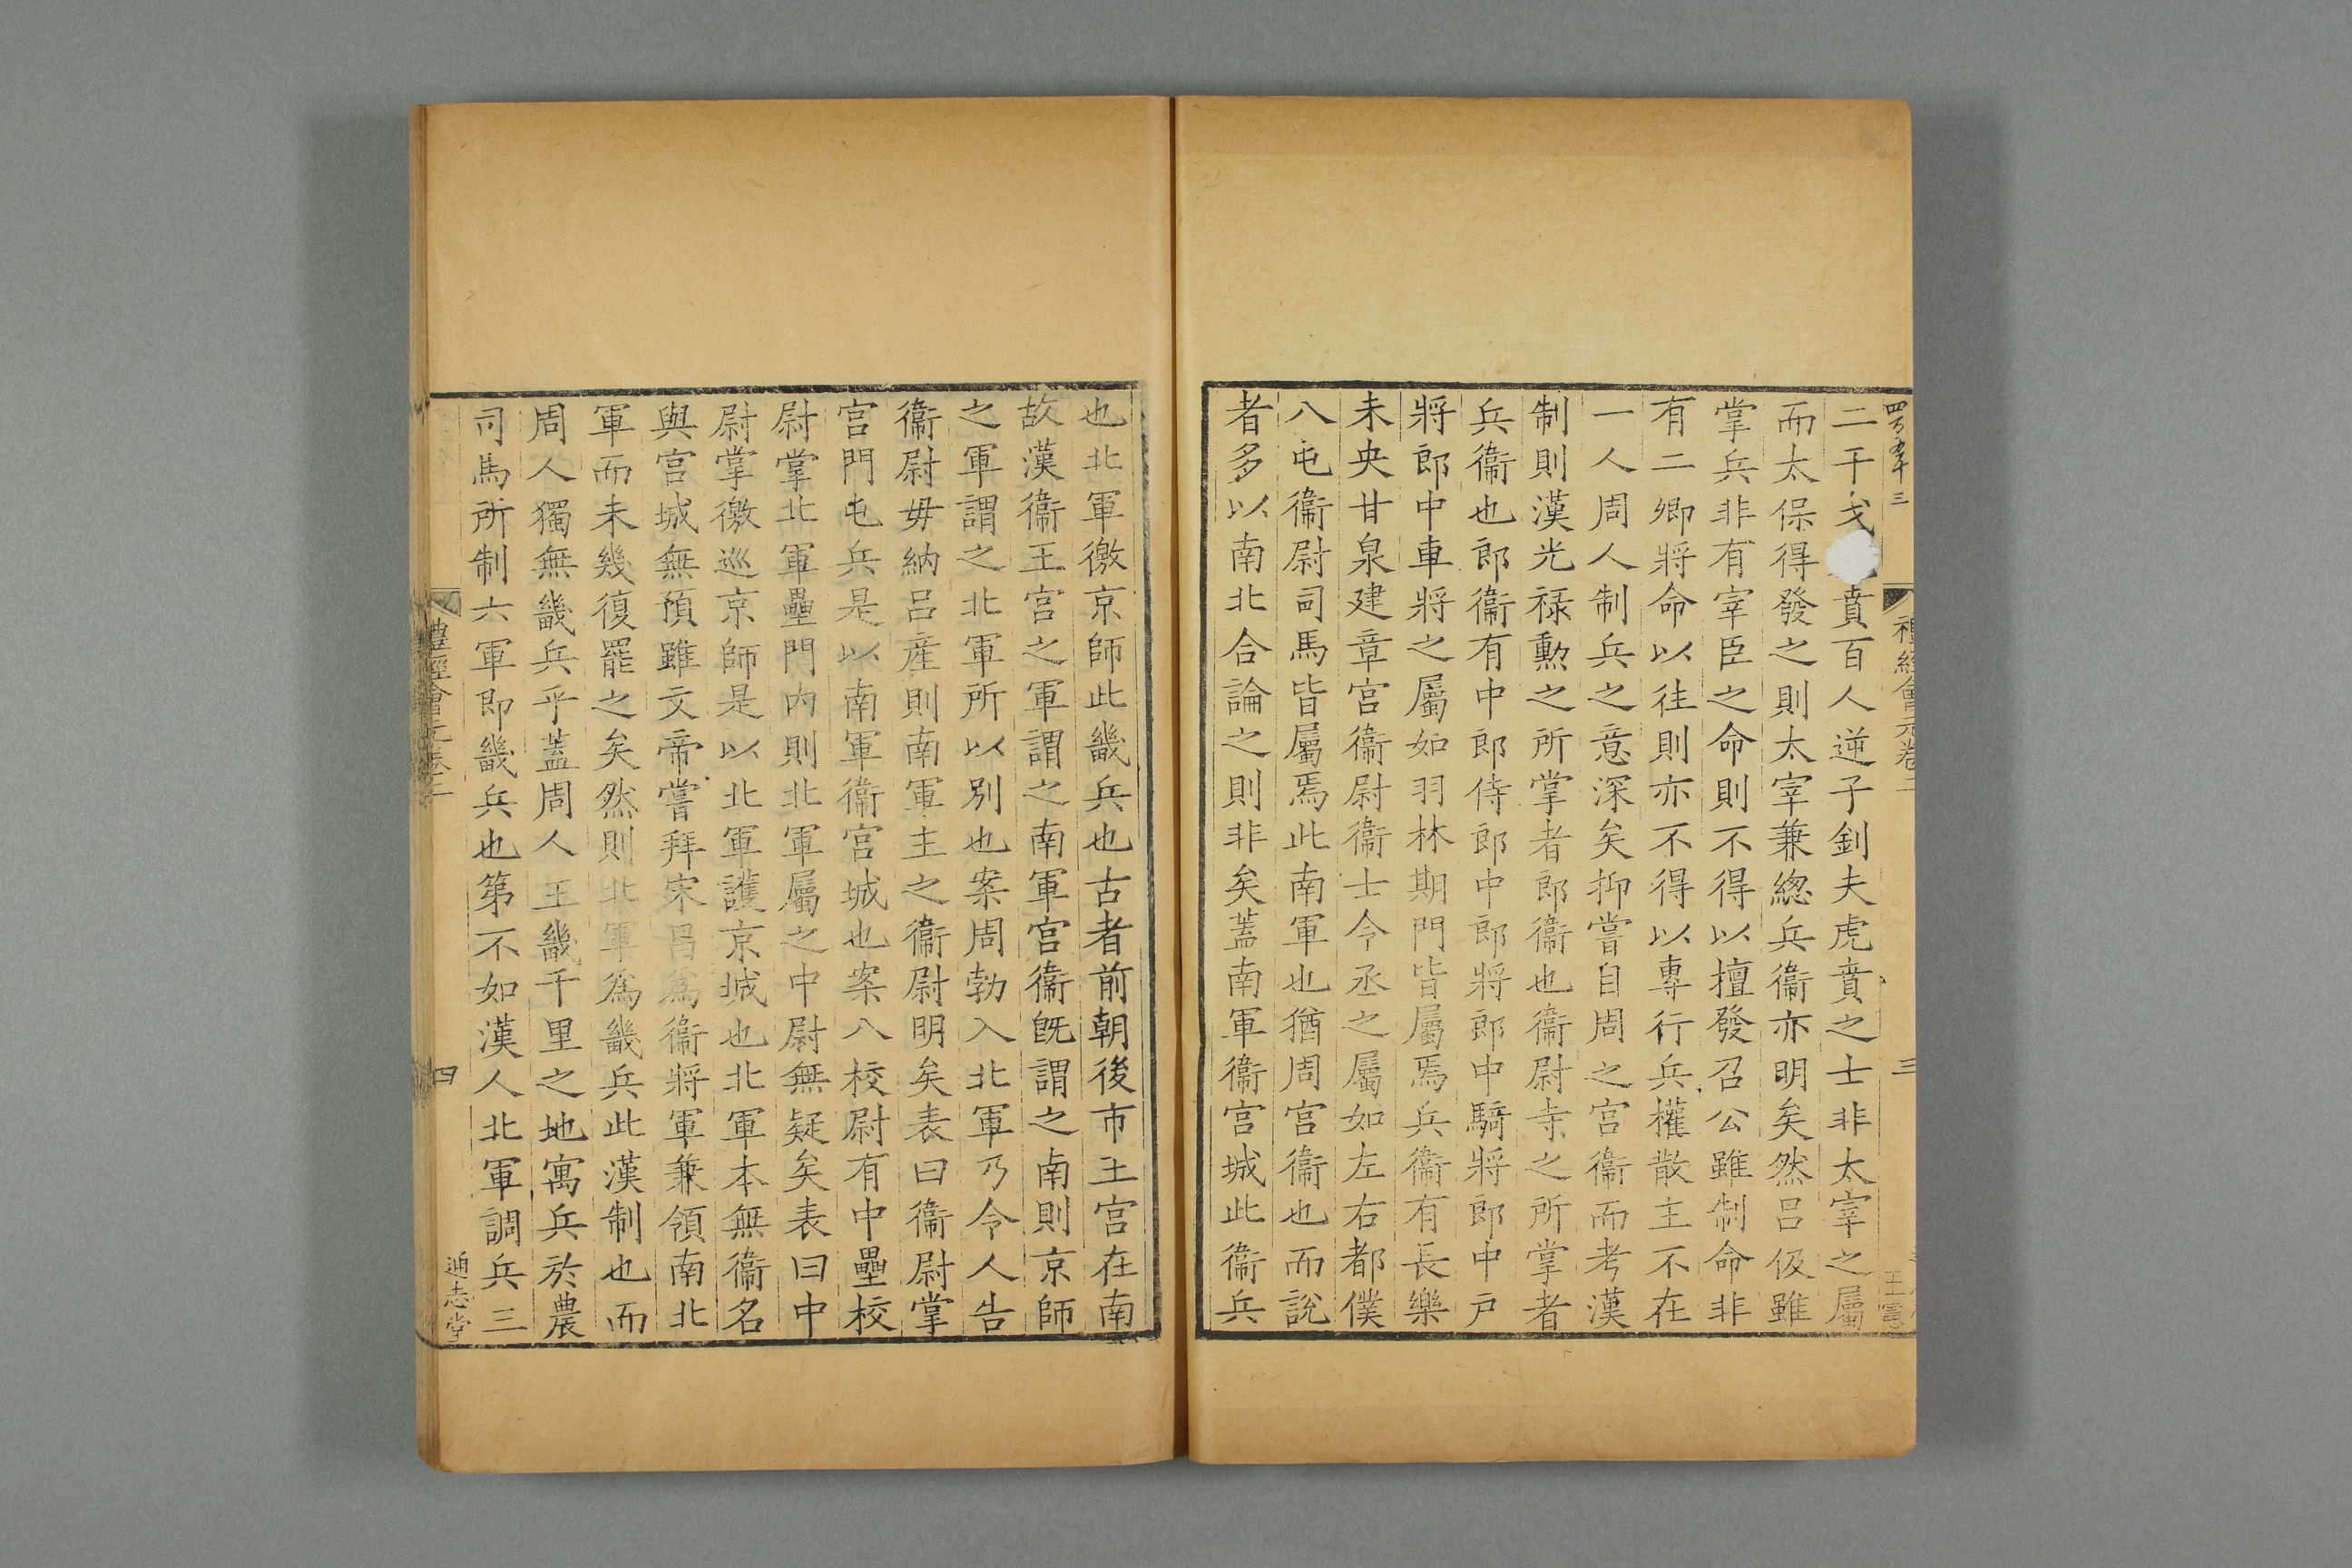 四百五十三
禮經會元卷二
三
二干戈賁百人逆子釗夫虎賁之士非太宰之屬
而太保得發之則太宰兼總兵衞亦明矣然呂伋雖
掌兵非有宰臣之命則不得以擅發召公雖制命非
有二卿將命以往則亦不得以專行兵權散主不在
一人周人制兵之意深矣抑嘗自周之宮衞而考漢
制則漢光祿勲之所掌者郎衞也衞尉寺之所掌者
兵衞也郎衞有中郎侍郎中郎將郎中騎將郎中戸
將郎中車將之屬如羽林期門皆屬焉兵衞有長樂
未央甘泉建章宮衞尉衞士令丞之屬如左右都僕
八屯衞尉司馬皆屬焉此南軍也猶周宮衞也而說
者多以南北合論之則非矣蓋南軍衞宮城此衞兵
也北軍徼京師此畿兵也古者前朝後市王宮在南
故漢衞王宮之軍謂之南軍宮衞旣謂之南則京師
之軍謂之北軍所以別也案周勃入北軍乃令人告
衞尉毋納呂產則南軍主之衞尉明矣表曰衞尉掌
宮門屯兵是以南軍衞宮城也案八校尉有中壘校
尉掌北軍壘門內則北軍屬之中尉無疑矣表曰中
尉掌徼巡京師是以北軍護京城也北軍本無衞名
與宮城無預雖文帝嘗拜宋昌爲衞將軍兼領南北
軍而未幾復罷之矣然則北軍爲畿兵此漢制也而
周人獨無畿兵乎蓋周人王畿千里之地寓兵於農
司馬所制六軍即畿兵也第不如漢人北軍調兵三
禮經會元卷二
四
通志堂